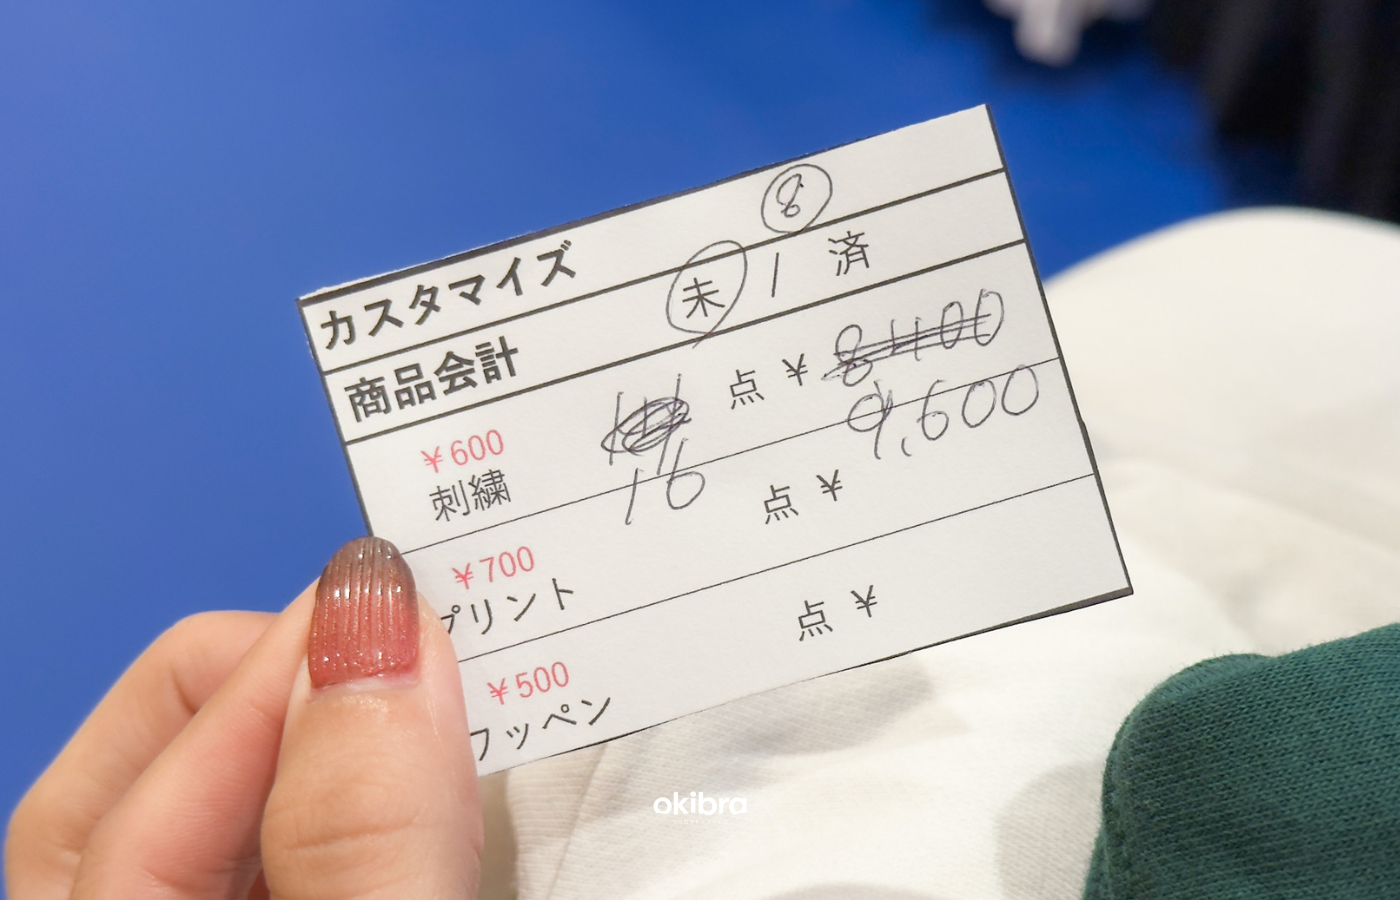 カスタマイズ ⑧
商品会計 未 / 済
¥600
刺繍 点 ¥ 8400
16 9,600
¥700
プリント 点 ¥
¥500
ワッペン 点 ¥
okibra